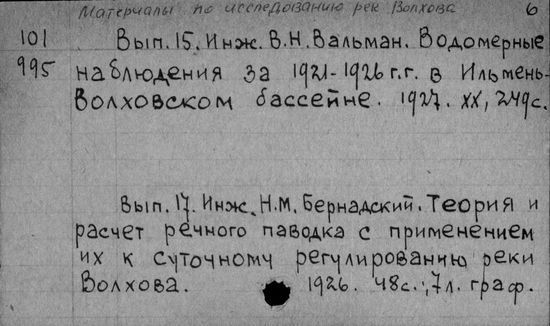 Материалы по исследованию рек Волхова 6
101 Вып. 15. Инж. В.Н. Вальман. Водомерные
995 наблюдения за 1921-1926 г.г. в Ильмень-
Волховском бассейне. 1927. XX, 249с.
Вып. 17. Инж. Н.М. Бернадский. Теория и
расчет речного паводка с применением
их к суточному регулированию реки
Волхова. 1926. 48с.; 7л. граф.